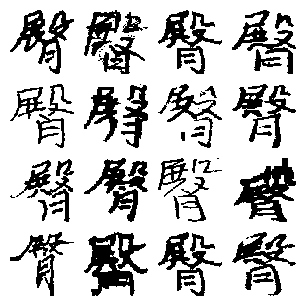 臀臀臀臀
臀臀臀臀
臀臀臀臀
臀臀臀臀